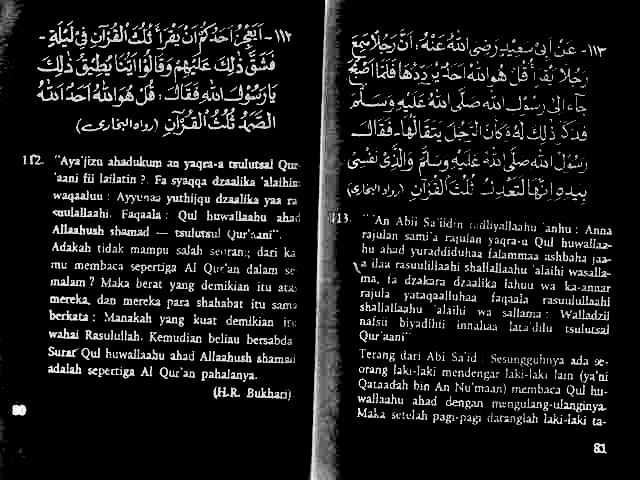 ١١٢- اَيَعْجِزُ اَحَدُكُمْ اَنْ يَقْرَأَ ثُلُثَ الْقُرْآنِ فِيْ لَيْلَةٍ -
فَشَقَّ ذٰلِكَ عَلَيْهِمْ وَقَالُوْا اَيُّنَا يُطِيْقُ ذٰلِكَ
يَارَسُوْلَ اللهِ فَقَالَ: قُلْ هُوَ اللهُ اَحَدٌ اَللهُ
الصَّمَدُ ثُلُثُ الْقُرْآنِ (رواه البخارى)
112. "Aya'jizu ahadukum an yaqra-a tsulutsal Qur-
'aani fii lailatin ?. Fa syaqqa dzaalika 'alaihim
waqaaluu : Ayyunaa yuthiiqu dzaalika yaa ra-
suulallaahi. Faqaala : Qul huwallaahu ahad
Allaahush shamad — tsulutsul Qur'aani".
Adakah tidak mampu salah seorang dari ka-
mu membaca sepertiga Al Qur'an dalam se-
malam ? Maka berat yang demikian itu atas
mereka, dan mereka para shahabat itu sama
berkata : Manakah yang kuat demikian itu
wahai Rasulullah. Kemudian beliau bersabda
Surat Qul huwallaahu ahad Allaahush shamad
adalah sepertiga Al Qur'an pahalanya.
(H.R. Bukhari)
80
١١٣- عَنْ اَبِيْ سَعِيْدٍ رَضِيَ اللهُ عَنْهُ: اَنَّ رَجُلًا سَمِعَ
رَجُلًا يَقْرَأُ قُلْ هُوَ اللهُ اَحَدٌ يُرَدِّدُهَا فَلَمَّا اَصْبَحَ
جَاءَ اِلَى رَسُوْلِ اللهِ صَلَّى اللهُ عَلَيْهِ وَسَلَّمَ
فَذَكَرَ ذٰلِكَ لَهُ وَكَاَنَّ الرَّجُلَ يَتَقَالُّهَا- فَقَالَ
رَسُوْلُ اللهِ صَلَّى اللهُ عَلَيْهِ وَسَلَّمَ وَالَّذِيْ نَفْسِيْ
بِيَدِهِ اِنَّهَا لَتَعْدِلُ ثُلُثَ الْقُرْآنِ (رواه البخارى)
113. "An Abii Sa'iidin radliyallaahu 'anhu : Anna
rajulan sami'a rajulan yaqra-u Qul huwallaa-
hu ahad yuraddiduhaa falammaa ashbaha jaa-
a ilaa rasuulillaahi shallallaahu 'alaihi wasalla-
ma, fa dzakara dzaalika lahuu wa ka-annar
rajula yataqaalluhaa faqaala rasuulullaahi
shallallaahu 'alaihi wa sallama : Walladzii
nafsii biyadihii innahaa lata'dilu tsulutsal
Qur'aani"
Terang dari Abi Sa'id : Sesungguhnya ada se-
orang laki-laki mendengar laki-laki lain (ya'ni
Qataadah bin An Nu'maan) membaca Qul hu-
wallaahu ahad dengan mengulang-ulanginya.
Maka setelah pagi-pagi datanglah laki-laki ta-
81